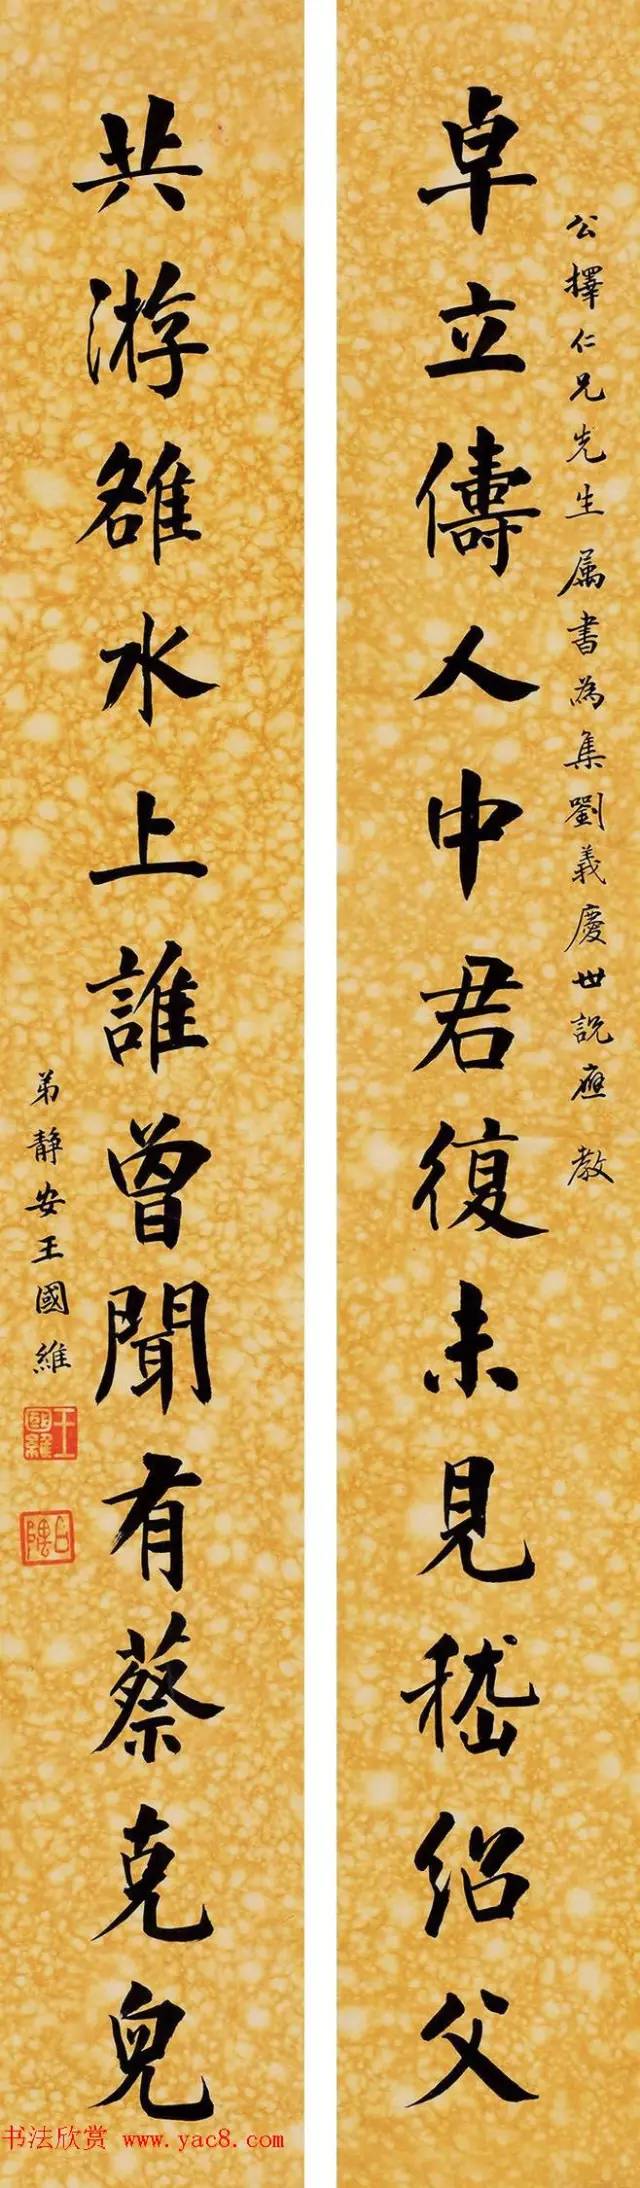 公擇仁兄先生属書為集劉義慶世説應教
卓立儔人中君復未見嵇紹父
共游雒水上誰曾聞有蔡克兒
弟靜安王國維
王國維
書法欣赏 www.yac8.com